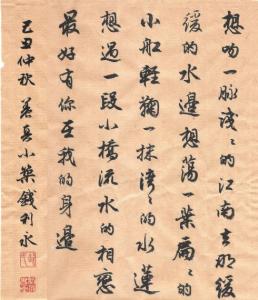 想吻一脉淺々的江南去那緩
緩的水邊想蕩一葉扁々的
小船輕鞠一抹清々的水蓮
想過一段小橋流水的相戀
最好有你在我的身邊
己丑仲秋 善真小築錢利永